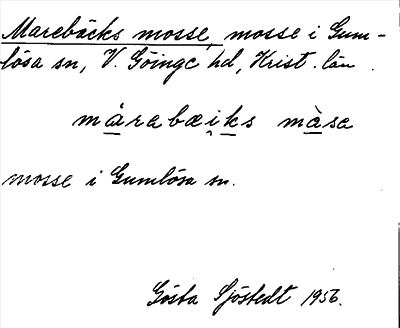 Marebäcks mosse, mosse i Gum-
lösa sn, V. Göinge hd, Krist. län.
mårabæiks måsa
mosse i Gumlösa sn.
Gösta Sjöstedt 1956.